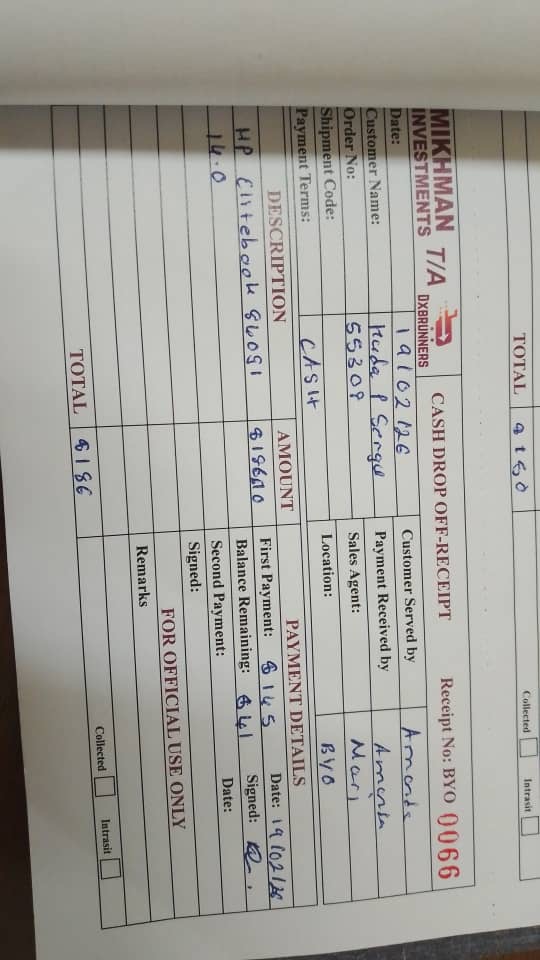 TOTAL $150
Collected Intrasit
MIKHMAN T/A DXBRUNNERS
INVESTMENTS
CASH DROP OFF-RECEIPT Receipt No: BYO 0066
Date: 19/02/26 Customer Served by
Customer Name: Huda P Payment Received by
Order No: 55309 Sales Agent:
Shipment Code: Location: BYO
Payment Terms: CASH
DESCRIPTION AMOUNT PAYMENT DETAILS
HP First Payment: $145 Date: 19/02/26
14.0 Balance Remaining: $41 Signed:
Second Payment: Date:
Signed:
FOR OFFICIAL USE ONLY
Remarks
TOTAL $186
Collected Intrasit